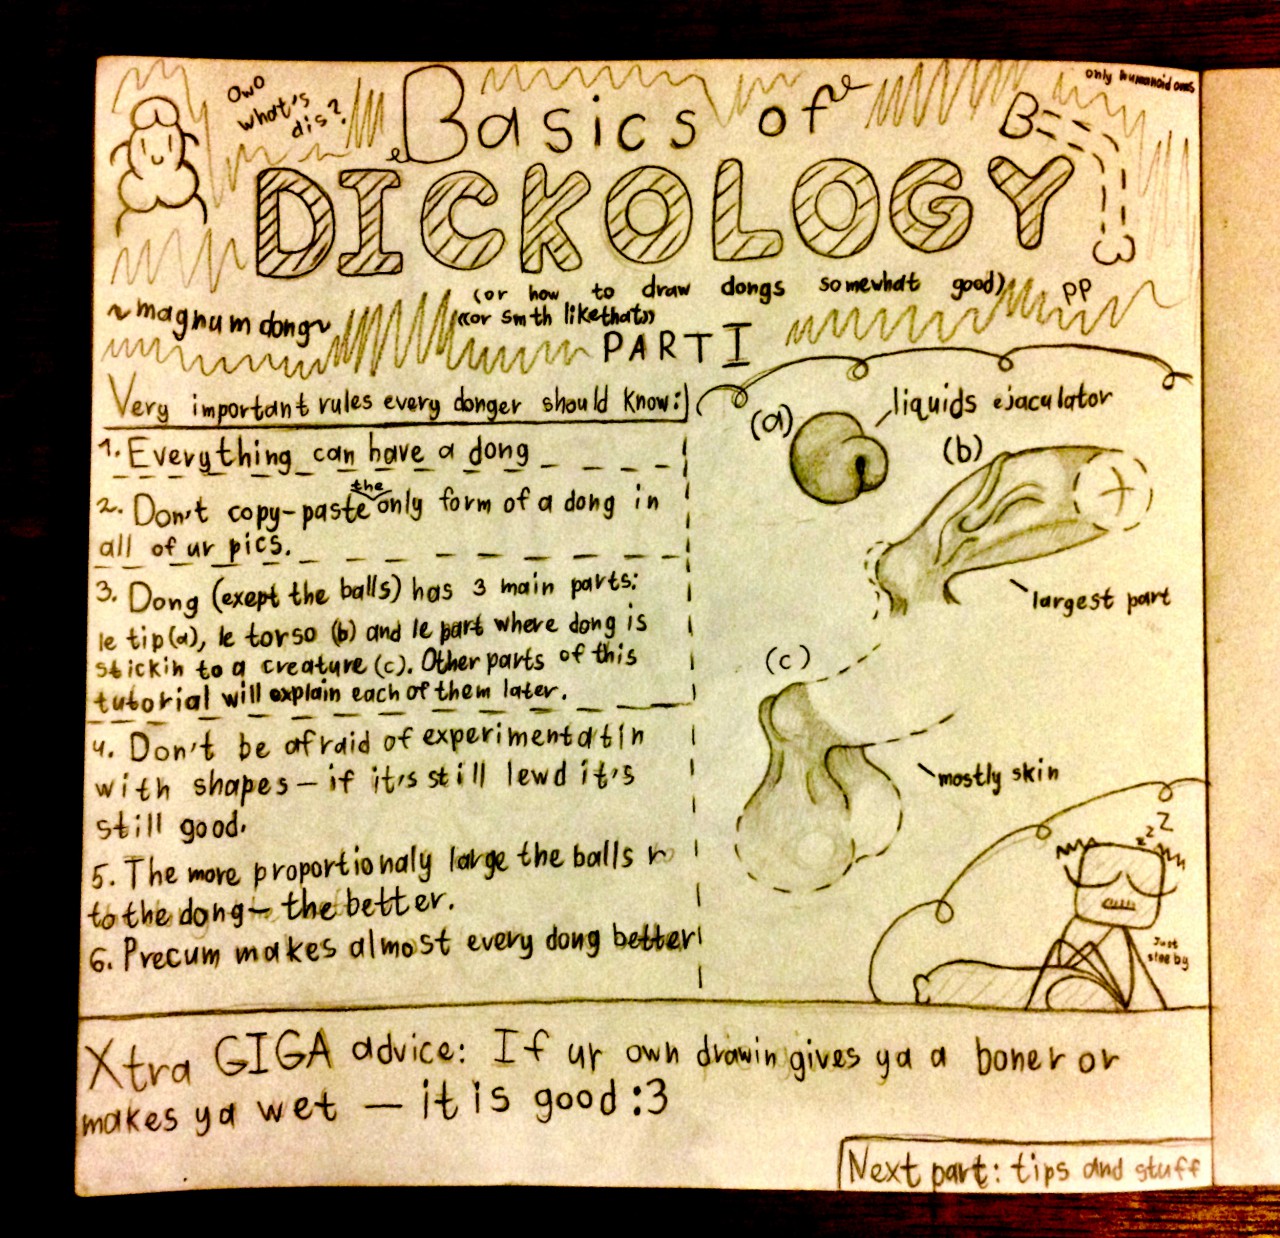 OwO
what's
dis?
Basics of
only humanoid ones
DICKOLOGY
(or how to draw dongs somewhat good)
PP
~magnum dong~
((or smth like that))
PART I
Very important rules every donger should know:
liquids ejaculator
(a)
(b)
1. Everything can have a dong
the
2. Don't copy-paste only form of a dong in
all of ur pics.
3. Dong (exept the balls) has 3 main parts:
le tip(a), le torso (b) and le part where dong is
stickin to a creature (c). Other parts of this
tutorial will explain each of them later.
largest part
(c)
4. Don't be afraid of experimentatin
with shapes – if it's still lewd it's
still good.
mostly skin
5. The more proportionaly large the balls r
to the dong – the better.
6. Precum makes almost every dong better
z z Z
Just
Xtra GIGA advice: If ur own drawin gives ya a boner or
makes ya wet — it is good :3
Next part: tips and stuff